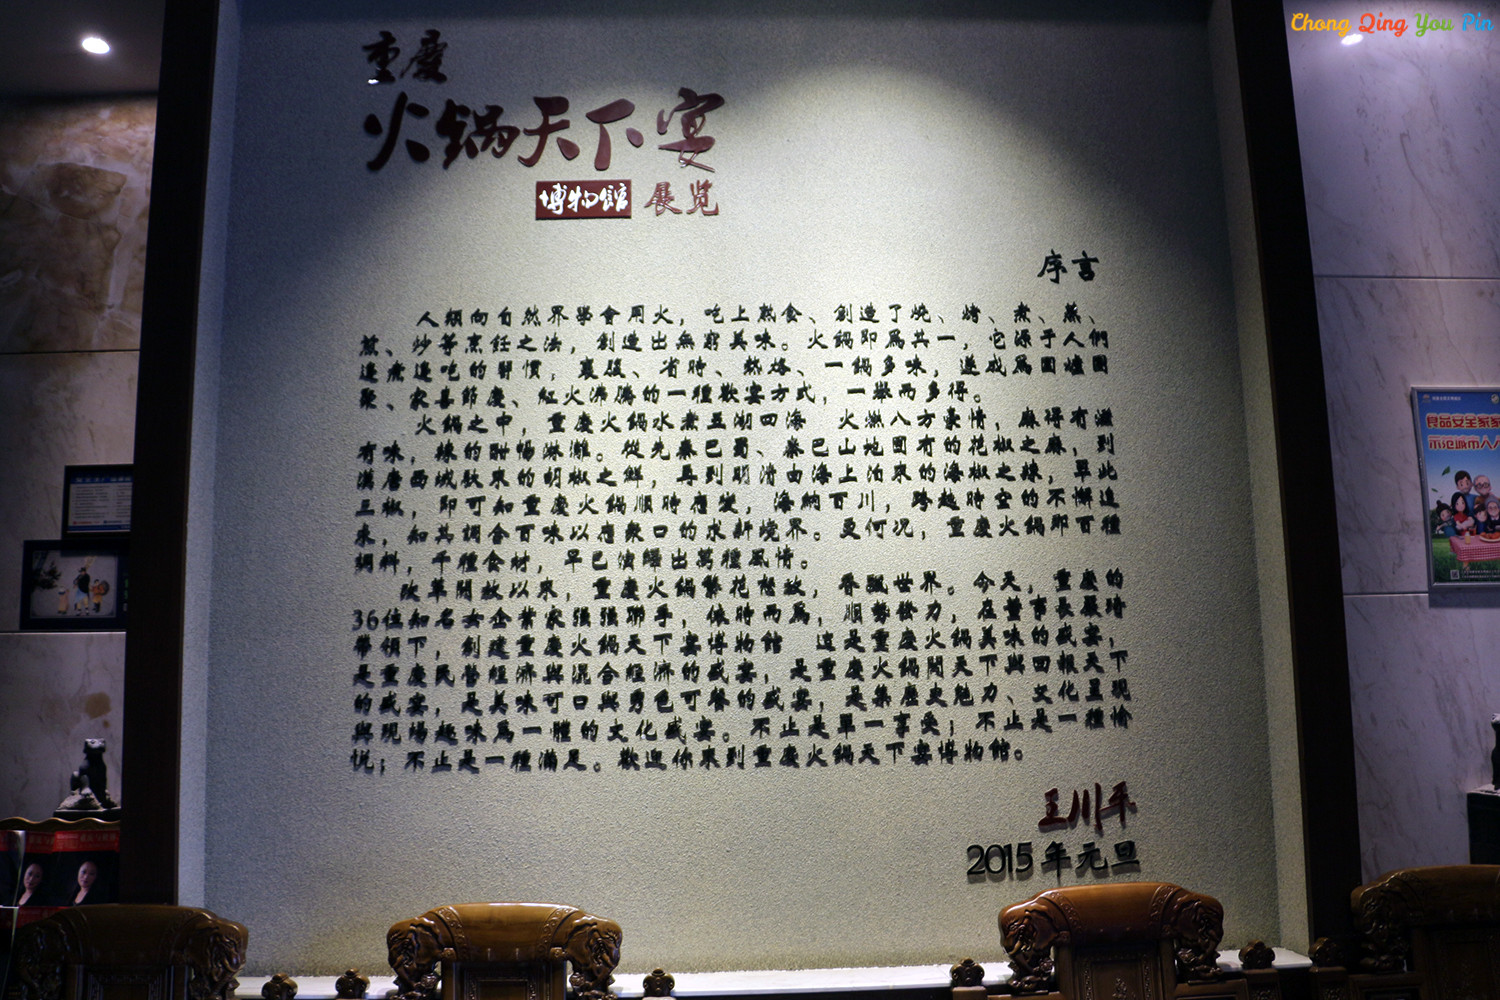 Chong Qing You Pin
重慶
火鍋天下宴
博物館 展览
序言
人類向自然界學會用火，吃上熟食、創造了燒、烤、煮、蒸、
煎、炒等烹飪之法，創造出無窮美味。火鍋即爲其一，它源于人們
邊煮邊吃的習慣，裹腹、省時、熱烙、一鍋多味，遂成爲圍爐團
聚、家喜節慶、紅火沸騰的一種歡宴方式，一舉而多得。
火鍋之中，重慶火鍋水煮五湖四海 火燃八方豪情，麻得有滋
有味，辣的酣暢淋灕。從先秦巴蜀、秦巴山地固有的花椒之麻，到
漢唐西域飲來的胡椒之鮮，再到明清由海上泊來的海椒之辣，單此
三椒，即可知重慶火鍋順時應變，海納百川，跨越時空的不懈追
求，知其調合百味以應衆口的求新境界。更何况，重慶火鍋即百種
調料，千種食材，早已演繹出萬種風情。
改革開放以來，重慶火鍋繁花怒放，香飄世界。今天，重慶的
36位知名女企業家强强聯手，依時而爲，順勢發力，在董事長嚴琦
帶領下，創建重慶火鍋天下宴博物館 這是重慶火鍋美味的盛宴，
是重慶民營經濟與混合經濟的盛宴，是重慶火鍋聞天下與回報天下
的盛宴，是美味可口與秀色可餐的盛宴，是集歷史魅力、文化呈現
與現場趣味爲一體的文化盛宴。不止是單一享受；不止是一種愉
悦；不止是一種滿足。歡迎你來到重慶火鍋天下宴博物館。
王川平
2015年元旦
食品安全家家
示范城市人人